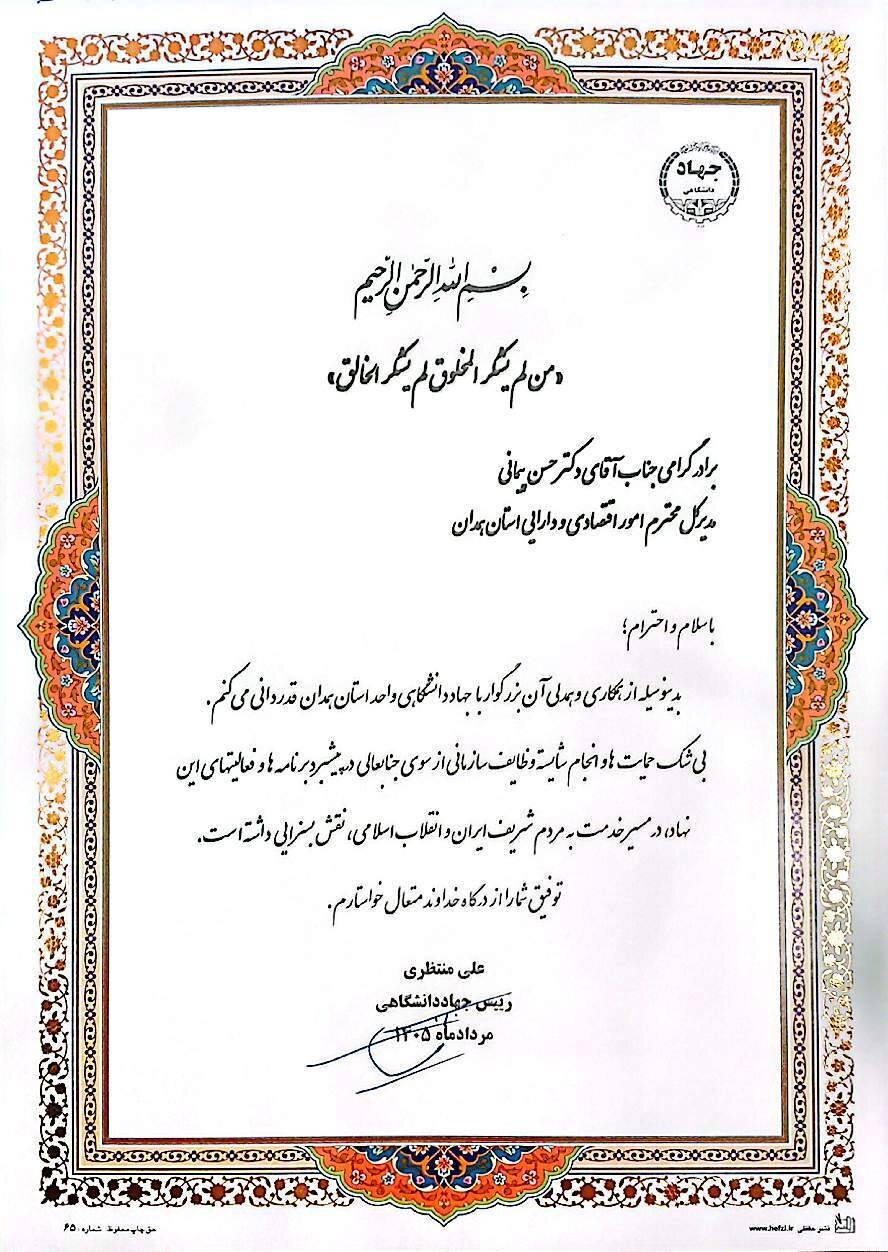 جهاد
دانشگاهی
بسم الله الرحمن الرحیم
«من لم یشکر المخلوق لم یشکر الخالق»
برادر گرامی جناب آقای دکتر حسن پیمانی
مدیرکل محترم امور اقتصادی و دارایی استان همدان
با سلام و احترام؛
بدینوسیله از همکاری و همدلی آن بزرگوار با جهاد دانشگاهی واحد استان همدان قدردانی می کنم.
بی شک حمایت ها و انجام شایسته وظایف سازمانی از سوی جنابعالی در پیشبرد برنامه ها و فعالیتهای این
نهاد، در مسیر خدمت به مردم شریف ایران و انقلاب اسلامی، نقش بسزایی داشته است.
توفیق شما را از درگاه خداوند متعال خواستارم.
علی منتظری
رییس جهاددانشگاهی
مردادماه ۱۴۰۵
حق چاپ محفوظ شماره ۶۵
www.hefzi.ir نشر حفظی